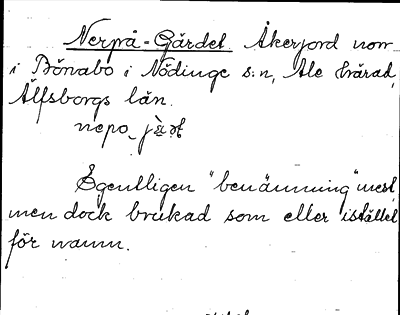 Nerpå-Gärdet Åkerjord norr
i Bönabo i Nödinge s:n, Ale härad,
Älfsborgs län.
nepo_
Egentligen "benämning" mest,
men dock brukad som eller istället
för namn.